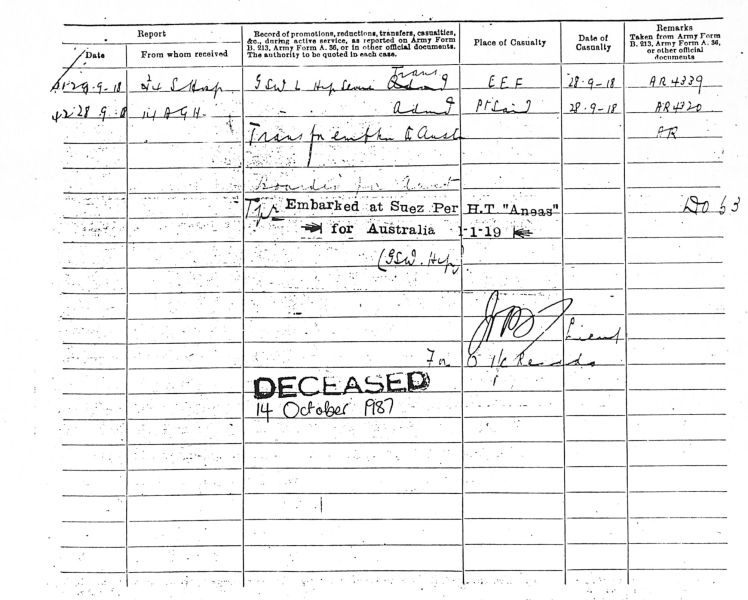 Report
Date
From whom received
Record of promotions, reductions, transfers, casualties,
&c., during active service, as reported on Army Form
B. 213, Army Form A. 36, or in other official documents.
The authority to be quoted in each case.
Place of Casualty
Date of
Casualty
Remarks
Taken from Army Form
B. 213, Army Form A. 36,
or other official
documents
9-18 24 S Hosp GSW L Hip Severe Trans Admd EEF 28-9-18 AR 4339
28.9.18 14 AGH - Admd Pt Said 28-9-18 AR 4320
Trans for to Aust AR
for Aust
Tpr Embarked at Suez Per H.T "Aneas" DO 63
for Australia 1-1-19
(GSW. Hip)
Lieut
For O i/c Records
DECEASED
14 October 1987